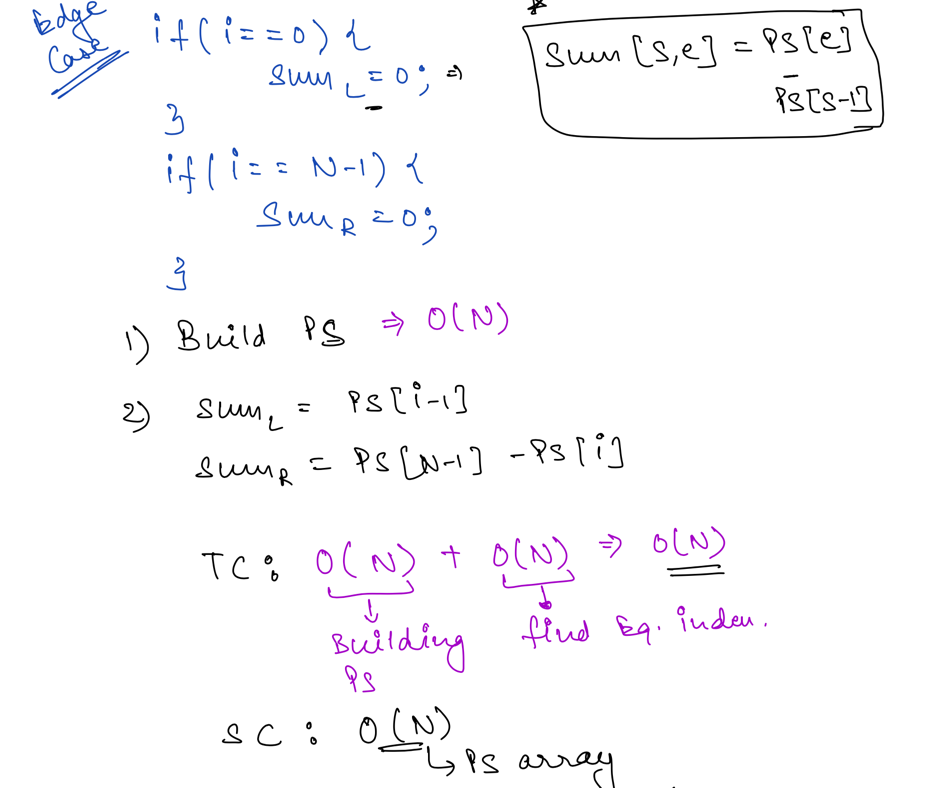 Edge
Case
if(i==0){
sum_L=0; =>
}
if(i== N-1){
Sum_R=0;
}
*
Sum[s,e] = PS[e]
-
PS[s-1]
1) Build PS => O(N)
2) sum_L = PS[i-1]
sum_R = PS[N-1] -PS[i]
TC: O(N) + O(N) => O(N)
Building find Eq. index.
PS
SC: O(N)
↳ PS array